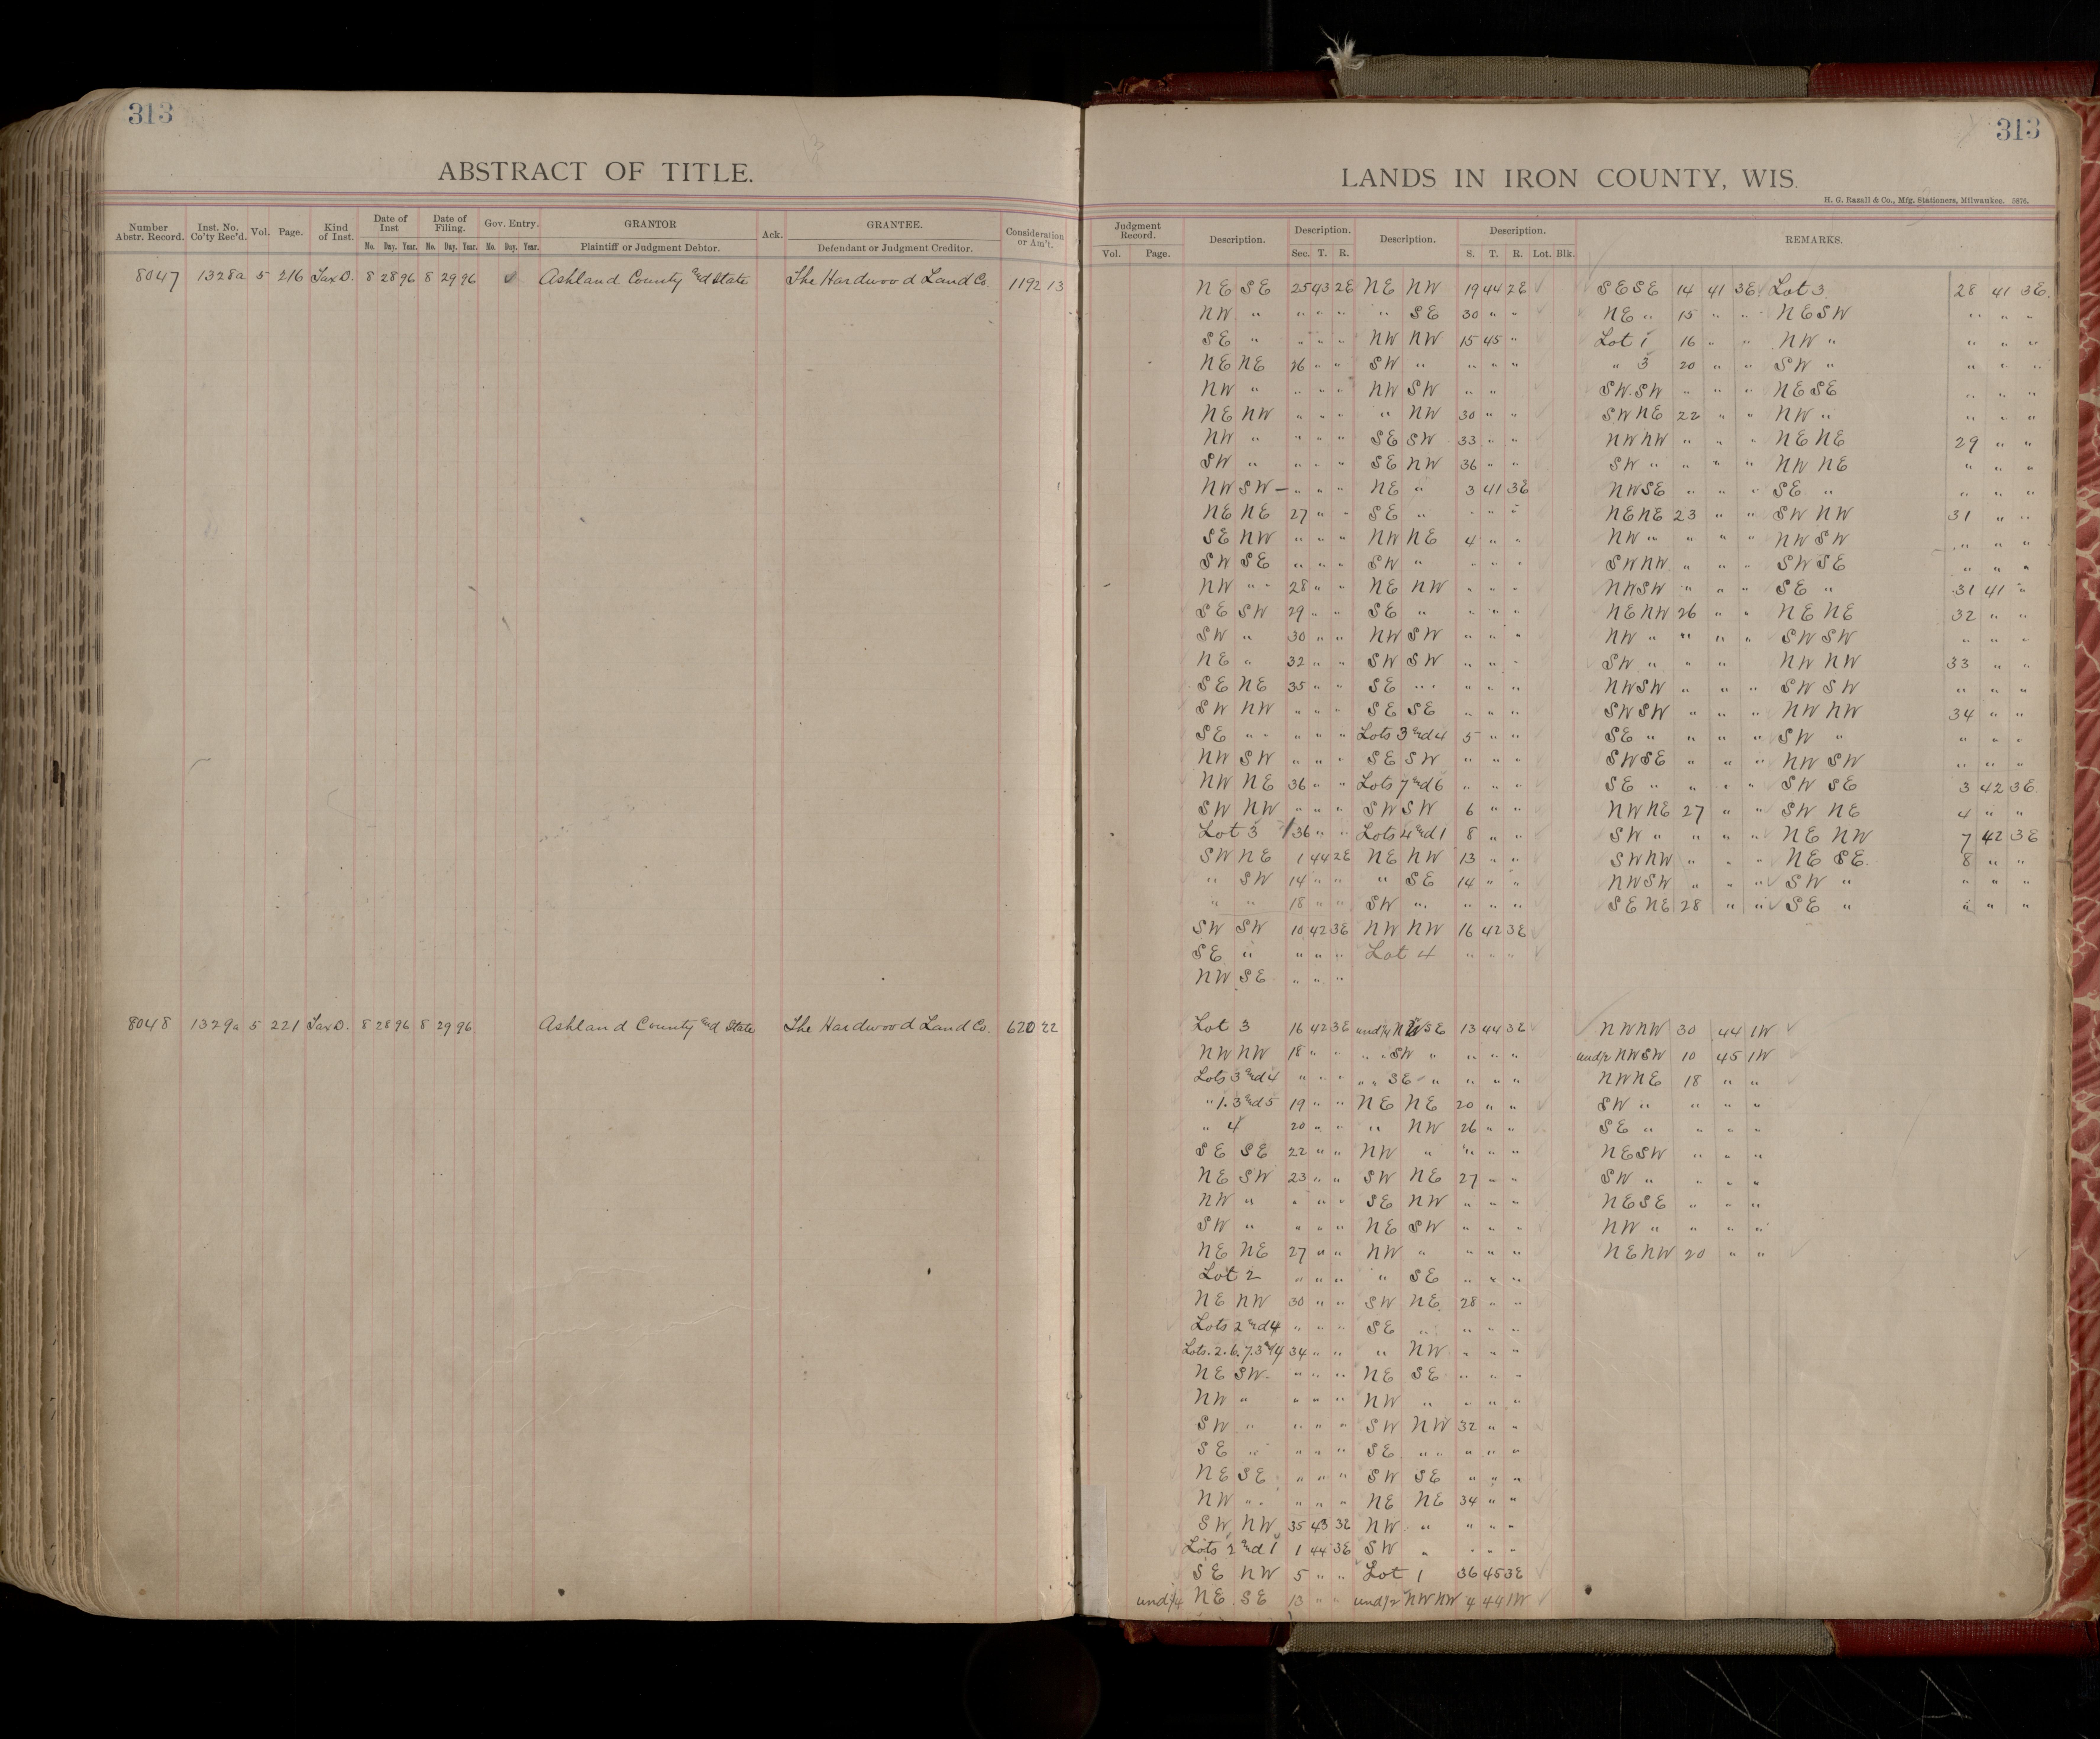 313
313
ABSTRACT OF TITLE.
LANDS IN IRON COUNTY, WIS.
H. G. Razall & Co., Mfg. Stationers, Milwaukee. 5876.
Number Abstr. Record. Inst. No. Co'ty Rec'd. Vol. Page. Kind of Inst. Date of Inst Date of Filing. Gov. Entry. GRANTOR Ack. GRANTEE. Consideration or Am't.
No. Day. Year. No. Day. Year. No. Day. Year. Plaintiff or Judgment Debtor. Defendant or Judgment Creditor.
Judgment Record. Description. Description. Description. Description. REMARKS.
Vol. Page. Sec. T. R. S. T. R. Lot. Blk.
8047 1328a 5 216 Tax D. 8 28 96 8 29 96 ✓ Ashland County and State The Hardwood Land Co. 1192 13
NE SE 25 43 2E NE NW 19 44 2E ✓ SESE 14 41 3E Lot 3 28 41 3E.
NW " " " " " SE 30 " " NE " 15 " " NESW " " "
SE " " " " NW NW 15 45 " Lot 1 16 " " NW " " " "
NE NE 26 " " SW " " " " " 3 20 " " SW " " " "
NW " " " " NW SW " " SW SW " " " NESE " " "
NE NW " " " " NW 30 " " SWNE 22 " " NW " " " "
NW " " " " SE SW 33 " " NWNW " " " NENE 29 " "
SW " " " " SE NW 36 " " SW " " " " NW NE " " "
NW SW " " " NE " 3 41 3E NWSE " " " SE " " " "
NE NE 27 " " SE " " " " NENE 23 " " SW NW 31 " "
SE NW " " " NW NE 4 " " NW " " " " NW SW " " "
SW SE " " " SW " " " " SWNW " " " SWSE " " "
NW " 28 " " NE NW " " " NWSW " " " SE " 31 41 "
SE SW 29 " " SE " " " " NENW 26 " " NE NE 32 " "
SW " 30 " " NW SW " " " NW " " " " SW SW " " "
NE " 32 " " SW SW " " " SW " " " NW NW 33 " "
SE NE 35 " " SE " " " " NWSW " " " SW SW " " "
SW NW " " " SE SE " " " SWSW " " " NW NW 34 " "
SE " " " " Lots 3 and 4 5 " " SE " " " " SW " " " "
NW SW " " " SE SW " " " SWSE " " " NW SW " " "
NW NE 36 " " Lots 7 and 6 " " " SE " " " " SW SE 3 42 3E.
SW NW " " " SW SW 6 " " NWNE 27 " " SW NE 4 " "
Lot 3 36 " " Lots 4 and 1 8 " " SW " " " " NE NW 7 42 3E
SW NE 1 44 2E NE NW 13 " " SWNW " " " NE SE. 8 " "
" SW 14 " " " SE 14 " " NWSW " " " SW " " " "
" " 18 " " SW " " " " SENE 28 " " SE " " " "
SW SW 10 42 3E NW NW 16 42 3E ✓
SE " " " " Lot 4 " " "
NW SE " " "
8048 1329a 5 221 Tax D. 8 28 96 8 29 96 Ashland County and State The Hardwood Land Co. 620 22
Lot 3 16 42 3E und 1/4 NWSE 13 44 3E NWNW 30 44 1W
NW NW 18 " " " " SW " " " " und 1/2 NWSW 10 45 1W
Lots 3 and 4 " " " " " SE " " " " NWNE 18 " "
" 1. 3 and 5 19 " " NE NE 20 " " SW " " " "
" 4 20 " " " NW 26 " " SE " " " "
SE SE 22 " " NW " " " " NESW " " "
NE SW 23 " " SW NE 27 " " SW " " " "
NW " " " " SE NW " " " NESE " " "
SW " " " " NE SW " " " NW " " " "
NE NE 27 " " NW " " " " NENW 20 " "
Lot 2 " " " " SE " " "
NE NW 30 " " SW NE 28 " "
Lots 2 and 4 " " " SE " " " "
Lots. 2. 6. 7. 3 and 4 34 " " " NW " " "
NE SW " " " NE SE " " "
NW " " " " NW " " " "
SW " " " " SW NW 32 " "
SE " " " " SE " " " "
NE SE " " " SW SE " " "
NW " " " " NE NE 34 " "
SW NW 35 43 3E NW " " " "
Lots 2 and 1 1 44 3E SW " " " "
SE NW 5 " " Lot 1 36 45 3E
und 1/4 NE SE 13 " " und 1/2 NWNW 4 44 1W